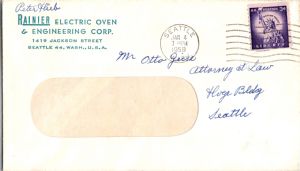 Peter Herb
RAINIER ELECTRIC OVEN
& ENGINEERING CORP.
1419 JACKSON STREET
SEATTLE 44, WASH., U.S.A.
SEATTLE
4
PM
1959
3¢
LIBERTY
Mr Otto
Attorney at Law
Hoge Bldg
Seattle